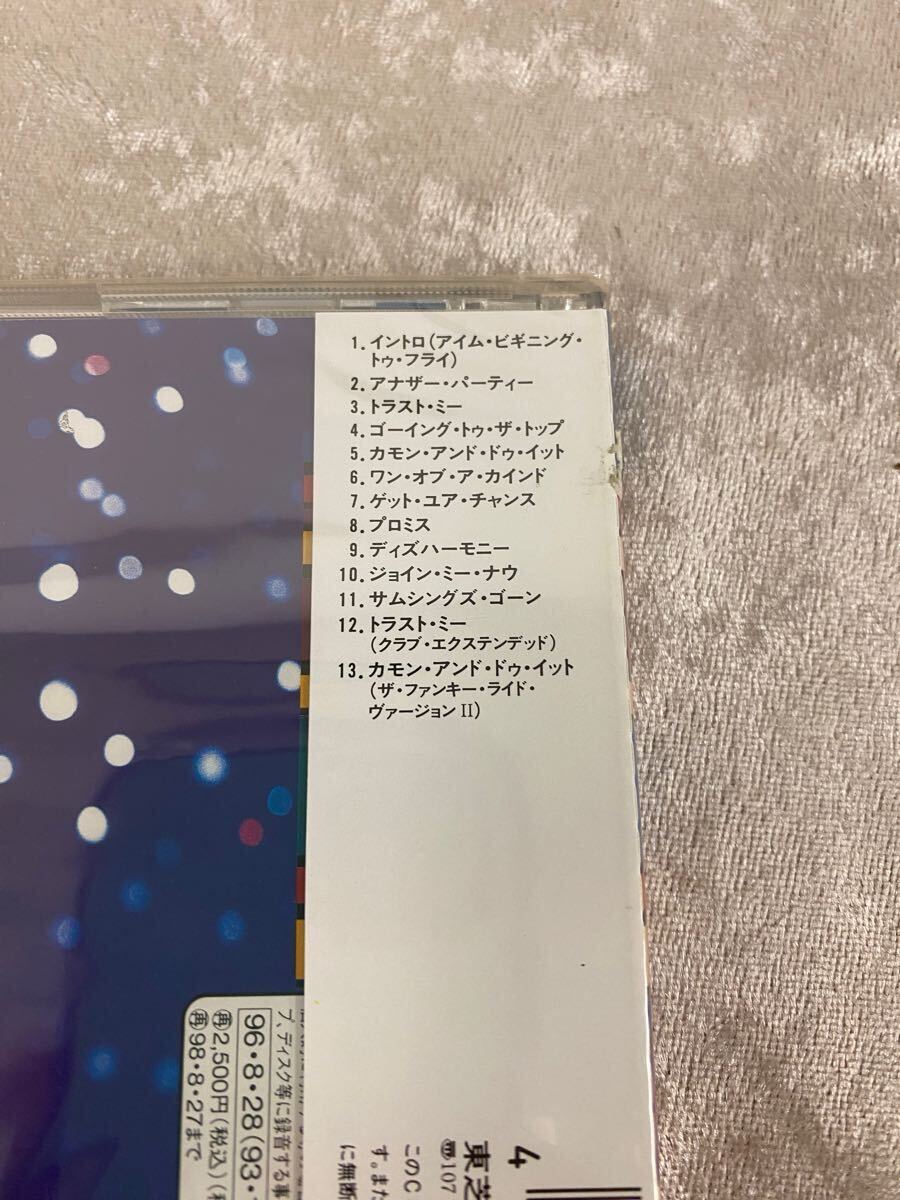 1.イントロ(アイム・ビギニング・
トゥ・フライ)
2.アナザー・パーティー
3.トラスト・ミー
4.ゴーイング・トゥ・ザ・トップ
5.カモン・アンド・ドゥ・イット
6.ワン・オブ・ア・カインド
7.ゲット・ユア・チャンス
8.プロミス
9.ディズハーモニー
10.ジョイン・ミー・ナウ
11.サムシングズ・ゴーン
12.トラスト・ミー
(クラブ・エクステンデッド)
13.カモン・アンド・ドゥ・イット
(ザ・ファンキー・ライド・
ヴァージョンⅡ)
プ、ディスク等に録音する事
96・8・28(93・
再2,500円(税込)(
再98・8・27まで
4
東芝
107
このC
す。また
に無断